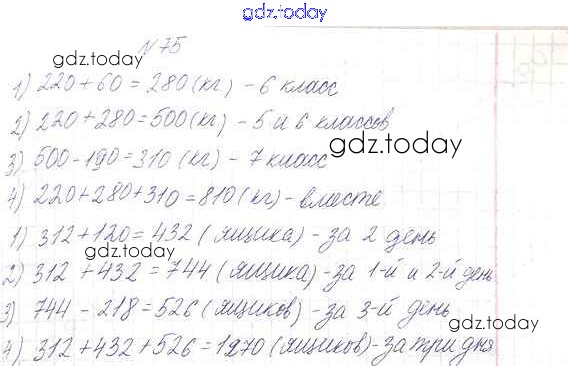 gdz.today
№75
gdz.today
1) 220+60=280(кг) - 6 класс
2) 220+280=500(кг) - 5 и 6 классов
gdz.today
3) 500-190=310(кг) - 7 класс
4) 220+280+310=810(кг) - вместе
1) 312+120=432(ящика) - за 2 день
gdz.today
2) 312+432=744(ящика) - за 1-й и 2-й день
3) 744-218=526(ящиков) - за 3-й день
gdz.today
4) 312+432+526=1270(ящиков) - за три дня